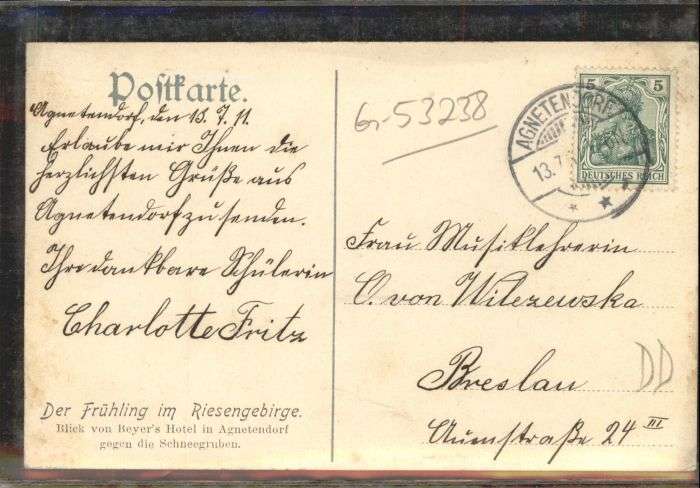 Postkarte.
Agnetendorf, den 13. 7. 11.
Erlaube mir Ihnen die
herzlichsten Grüße aus
Agnetendorf zu senden.
Ihre dankbare Schülerin
Charlotte Fritz
Der Frühling im Riesengebirge.
Blick von Beyer's Hotel in Agnetendorf
gegen die Schneegruben.
Gr-53238
AGNETENDORF
13.7.
5 5
DEUTSCHES REICH
Frau Musiklehrerin
O. von Wilczewska
Breslau
Auenstraße 24 III
DD